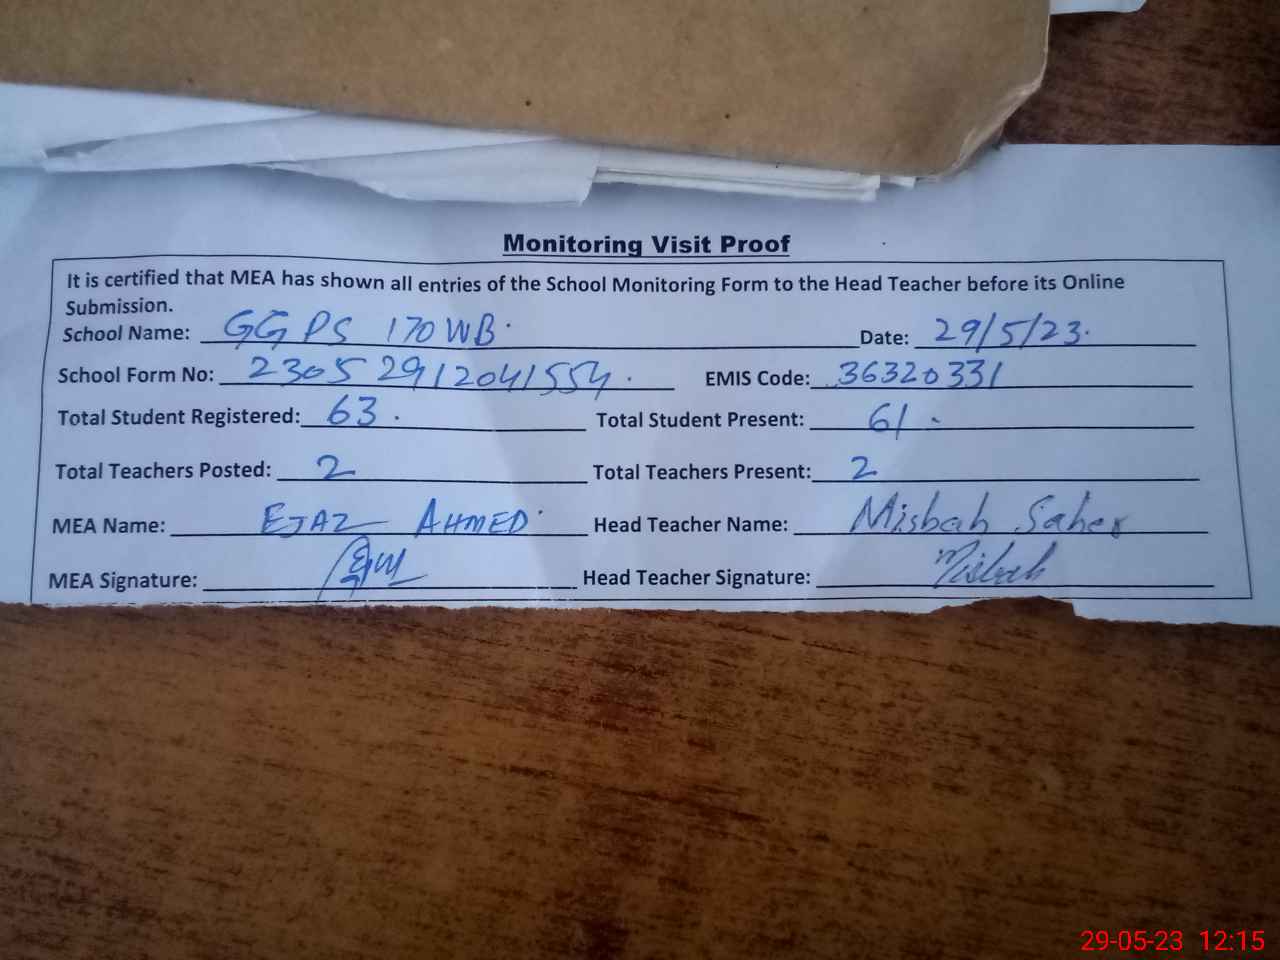 Monitoring Visit Proof
It is certified that MEA has shown all entries of the School Monitoring Form to the Head Teacher before its Online
Submission.
School Name: GGPS 170WB. Date: 29/5/23.
School Form No: 23052912041554. EMIS Code: 36320331
Total Student Registered: 63. Total Student Present: 61.
Total Teachers Posted: 2 Total Teachers Present: 2
MEA Name: EJAZ AHMED Head Teacher Name: Misbah Saher
MEA Signature: Head Teacher Signature: Misbah
29-05-23 12:15